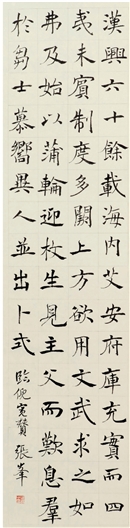 漢興六十餘載海内艾安府庫充實而四
夷未賓制度多闕上方欲用文武求之如
弗及始以蒲輪迎枚生見主父而歎息羣
於芻士慕嚮異人並出卜式
臨倪寬贊張峯